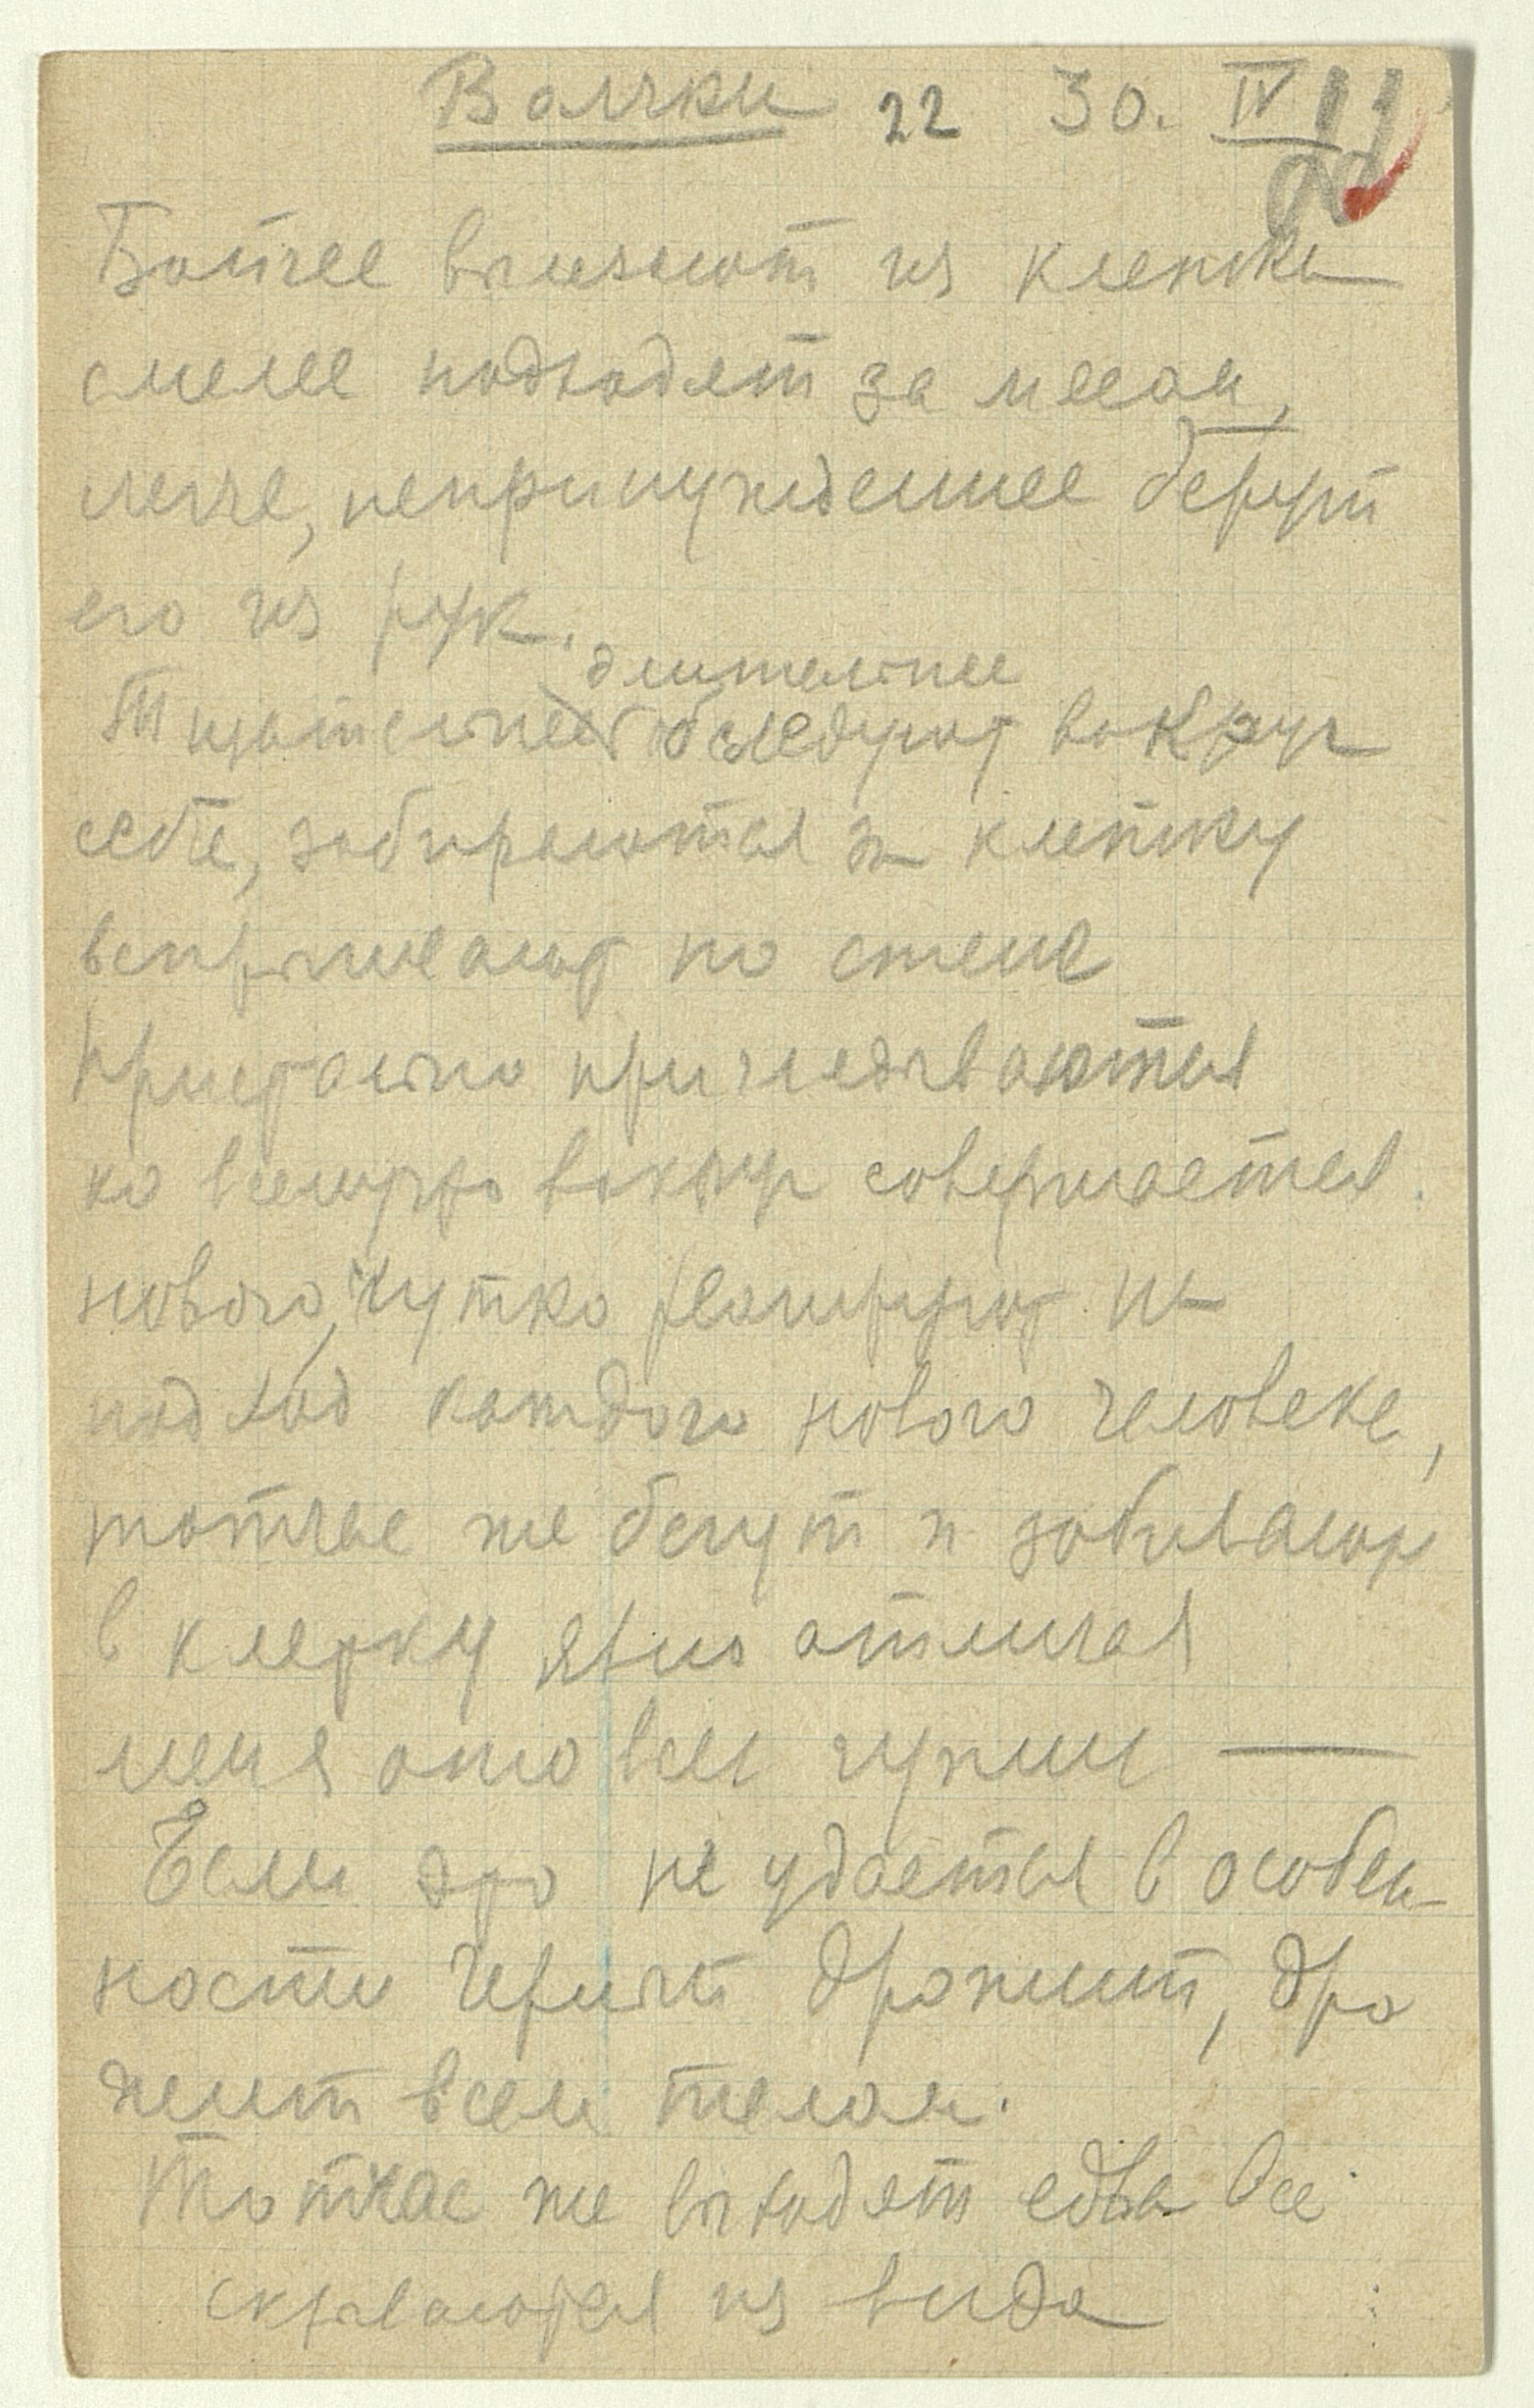 Волчки 22 30. IV 22
Бойчее вылезают из клетки
смелее подходят за мясом,
легче, непринужденнее берут
его из рук.
длительнее
Тщательнее обследуют вокруг
себя, забираются за клетку
вспрыгивают по стене
Пристально приглядываются
ко всему что вокруг совершается
нового, чутко реагируют на
подход каждого нового человека,
тотчас же бегут и забиваются
в клетку явно отличая
меня ото всех чужих —
Если это не удается в особен-
ности дрожит, дро
жит всем телом.
Тотчас же выходят едва все
скрываются из вида